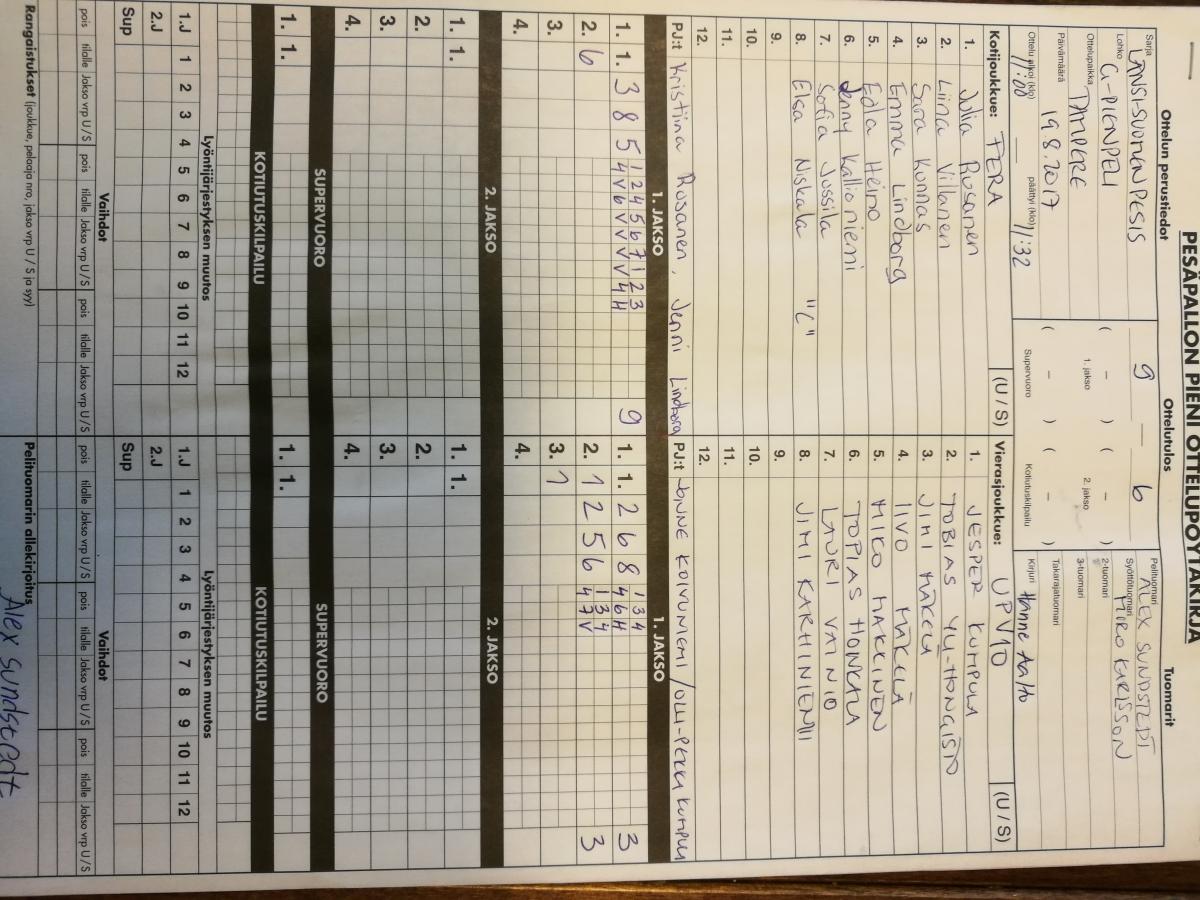 PESÄPALLON PIENI OTTELUPÖYTÄKIRJA
Ottelun perustiedot
Ottelutulos
Tuomarit
Sarja LÄNSI-SUOMEN PESIS
Lohko G-PIENPELI
Ottelupaikka TAMPERE
Päivämäärä 19.8.2017
Ottelu alkoi (klo) 11:00 päättyi (klo) 11:32
9 — 6
( - ) ( - )
1. jakso 2. jakso
( - ) ( - )
Supervuoro Kotiutuskilpailu
Pelituomari ALEX SUNDSTEDT
Syöttötuomari MIRO KARLSSON
2-tuomari
3-tuomari
Takarajatuomari
Kirjuri Hanne Aalto
Kotijoukkue: FERA (U / S)
1. Julia Rosanen
2. Liina Villanen
3. Sara Kunnas
4. Emma Lindborg
5. Edla Heino
6. Jenny Kallioniemi
7. Sofia Jussila
8. Elsa Niskala "C"
9.
10.
11.
12.
PJ:t Kristiina Rosanen, Jenni Lindborg
Vierasjoukkue: UPV10 (U / S)
1. JESPER KUMPULA
2. TOBIAS YLI-HONGISTO
3. JIMI MÄKELÄ
4. IIVO MÄKELÄ
5. MIKO HAKKINEN
6. TOPIAS HONKALA
7. LAURI VAINIO
8. JIMI KARHINIEMI
9.
10.
11.
12.
PJ:t KOIVUNIEMI / OLLI-PEKKA
1. JAKSO 1. JAKSO
1. 1. 3 8 5 1 2 4 5 6 7 1 2 3 9
4 V 6 V V V V 4 H
2. 6
3.
4.
1. 1. 2 6 8 1 3 4 3
4 6 H
2. 1 2 5 6 1 3 4 3
4 7 V
3. 7
4.
2. JAKSO 2. JAKSO
1. 1. 1. 1.
2. 2.
3. 3.
4. 4.
SUPERVUORO SUPERVUORO
1. 1. 1. 1.
KOTIUTUSKILPAILU KOTIUTUSKILPAILU
Lyöntijärjestyksen muutos Lyöntijärjestyksen muutos
1.J 1 2 3 4 5 6 7 8 9 10 11 12 1.J 1 2 3 4 5 6 7 8 9 10 11 12
2.J 2.J
Sup Sup
Vaihdot Vaihdot
pois tilalle Jakso vrp U / S pois tilalle Jakso vrp U / S pois tilalle Jakso vrp U / S pois tilalle Jakso vrp U / S pois tilalle Jakso vrp U / S pois tilalle Jakso vrp U / S
Rangaistukset (joukkue, pelaaja nro, jakso vrp U / S ja syy)
Pelituomarin allekirjoitus
Alex Sundstedt